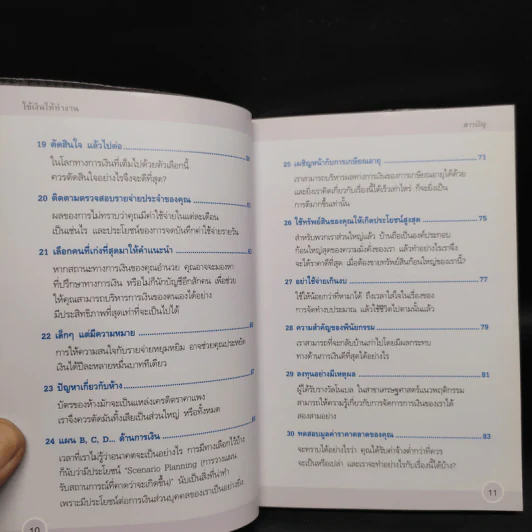 ใช้เงินให้ทำงาน
19 ตัดสินใจ แล้วไปต่อ
ในโลกทางการเงินที่เต็มไปด้วยตัวเลือกนี้
ควรตัดสินใจอย่างไรจึงจะดีที่สุด?
20 ติดตามตรวจสอบรายจ่ายประจำของคุณ
ผลของการไม่ทราบว่าคุณมีค่าใช้จ่ายในแต่ละเดือน
เป็นเช่นไร และประโยชน์ของการจดบันทึกค่าใช้จ่ายรายวัน
21 เลือกคนที่เก่งที่สุดมาให้คำแนะนำ
หากสถานะทางการเงินของคุณอำนวย คุณอาจจะมองหา
ที่ปรึกษาทางการเงิน หรือไม่ก็นักบัญชีอีกสักคน เพื่อช่วย
ให้คุณสามารถบริหารการเงินของตนเองได้อย่าง
มีประสิทธิภาพที่สุดเท่าที่จะเป็นไปได้
22 เล็กๆ แต่มีความหมาย
การให้ความสนใจกับรายจ่ายหยุมหยิม อาจช่วยคุณประหยัด
เงินได้ปีละหลายหมื่นบาททีเดียว
23 ปัญหาเกี่ยวกับห้าง
บัตรของห้างมักจะเป็นแหล่งเครดิตราคาแพง
เราจึงควรตัดมันทิ้งเสียเป็นส่วนใหญ่ หรือทั้งหมด
24 แผน B, C, D... ด้านการเงิน
เวลาที่เราไม่รู้ว่าอนาคตจะเป็นอย่างไร การมีทางเลือกไว้บ้าง
ก็นับว่ามีประโยชน์ "Scenario Planning (การวางแผน
รับสถานการณ์ที่คาดว่าจะเกิดขึ้น)" นับเป็นสิ่งที่น่าทำ
เพราะมีประโยชน์ต่อการเงินส่วนบุคคลของเราเป็นอย่างยิ่ง
10
สารบัญ
25 เผชิญหน้ากับการเกษียณอายุ 71
เราสามารถบริหารผลทางการเงินของการเกษียณอายุได้ด้วย
และยิ่งเราคิดเกี่ยวกับเรื่องนี้ได้เร็วเท่าไหร่ ก็จะยิ่งเป็น
การดีมากขึ้นเท่านั้น
26 ใช้ทรัพย์สินของคุณให้เกิดประโยชน์สูงสุด 75
สำหรับพวกเราส่วนใหญ่แล้ว บ้านถือเป็นองค์ประกอบ
ก้อนใหญ่สุดของความมั่งคั่งของเรา แล้วทำอย่างไรเราจึง
จะได้ราคาดีที่สุด เมื่อต้องขายทรัพย์สินก้อนใหญ่ของเรานี้?
27 อย่าใช้จ่ายเกินงบ 77
ใช้ให้น้อยกว่าที่หามาได้ ถึงเวลาใส่ใจในเรื่องของ
การจัดทำงบประมาณ แล้วใช้ชีวิตไปตามนั้นแล้ว
28 ความสำคัญของพินัยกรรม 79
เราสามารถที่จะกลับบ้านเก่าไปโดยมีผลกระทบ
ทางด้านการเงินดีที่สุดได้อย่างไร
29 ลงทุนอย่างมีเหตุผล 81
ผู้ได้รับรางวัลโนเบล ในสาขาเศรษฐศาสตร์แนวพฤติกรรม
สามารถให้ความรู้เกี่ยวกับการจัดการการเงินของเราได้
สองสามอย่าง
30 ทดสอบมูลค่าราคาตลาดของคุณ 83
จะทราบได้อย่างไรว่า คุณได้รับค่าจ้างต่ำกว่าที่ควร
จะเป็นหรือเปล่า และเราจะทำอย่างไรกับเรื่องนี้ได้บ้าง?
11